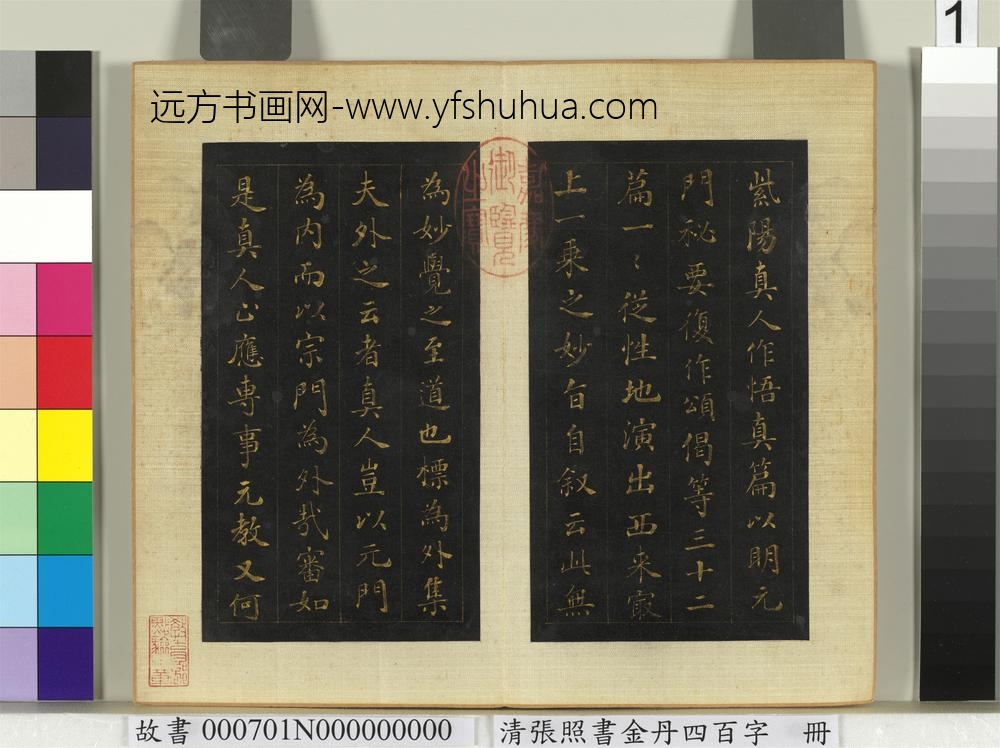 1
远方书画网-www.yfshuhua.com
紫陽真人作悟真篇以明元
門秘要復作頌偈等三十二
篇一〻從性地演出西来㝡
上一乘之妙旨自叙云此無
為妙覺之至道也標為外集
夫外之云者真人豈以元門
為内而以宗門為外哉審如
是真人止應專事元教又何
嘉慶
御覽
之寶
故書 000701N000000000
清張照書金丹四百字 冊